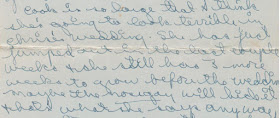 Cook is so large that I think
she's going to look terrible in
Chris's wedding. She has just
jumped out in the last couple
weeks & she still has 3 more
weeks to grow before the wedding
maybe the will hide it
that's what she says anyway